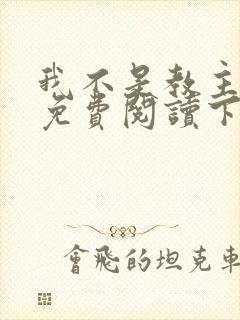 我不是教主
免費閱讀下
會飛的坦克車